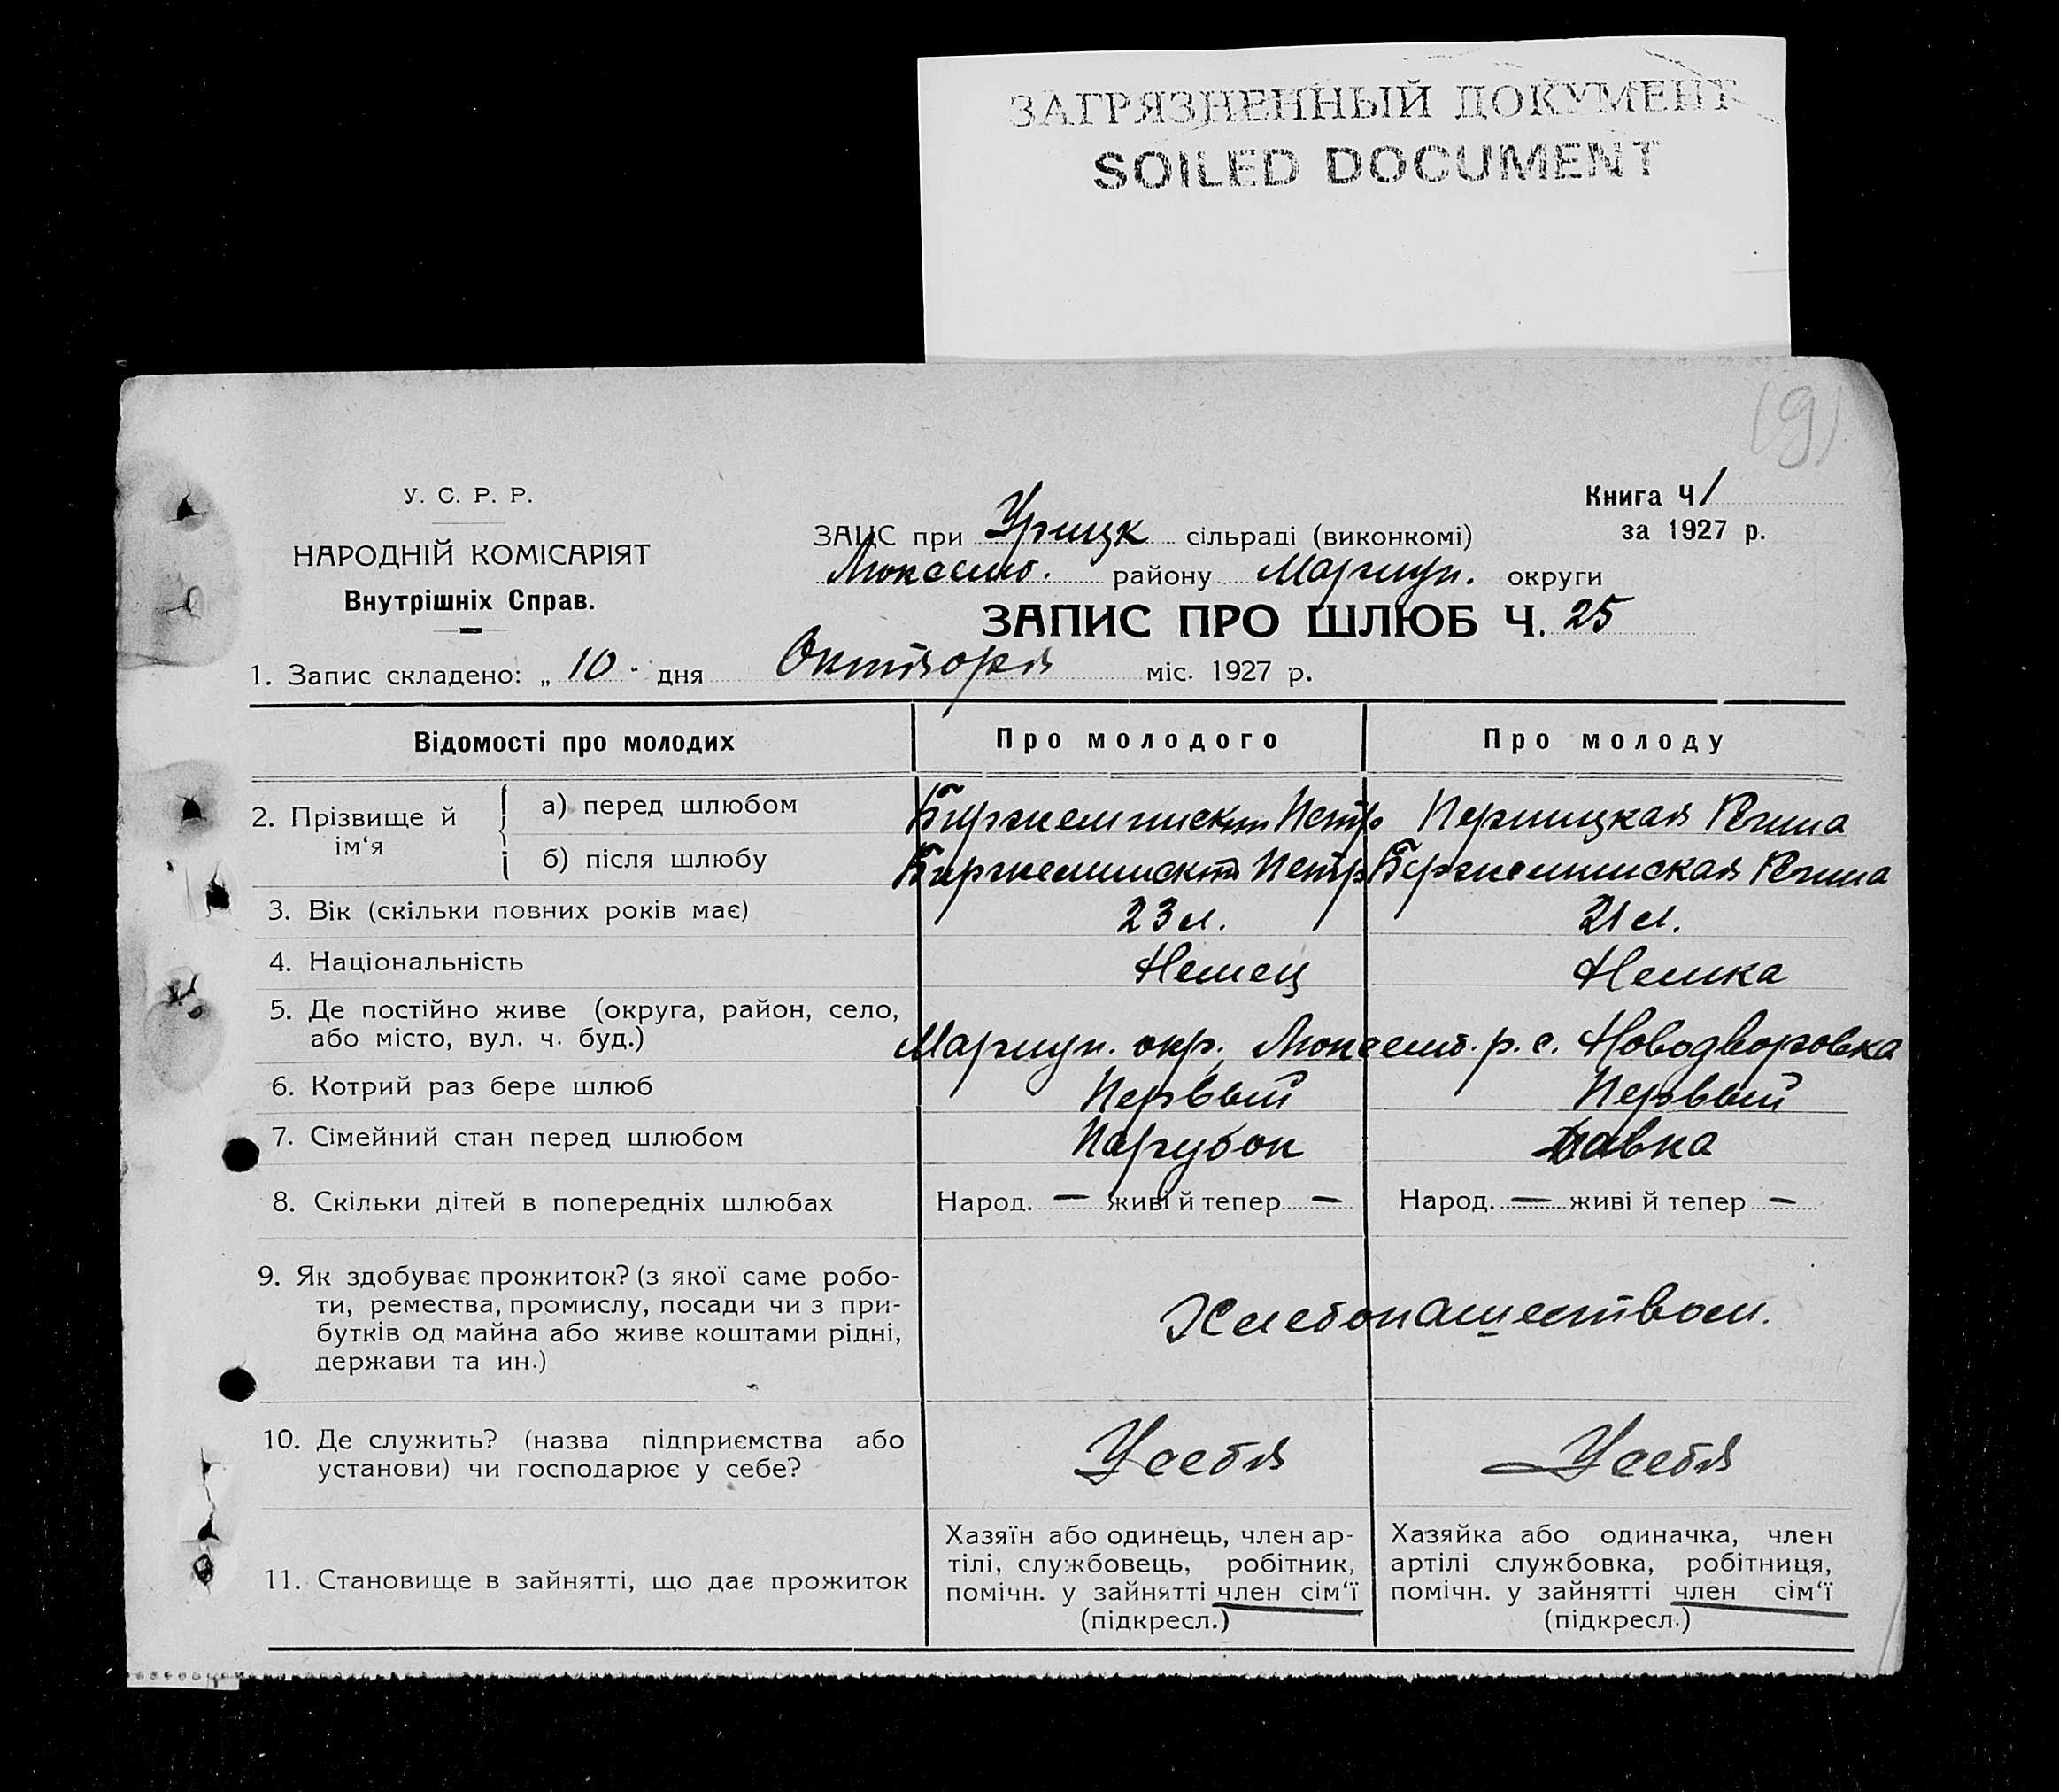 ЗАГРЯЗНЕННЫЙ ДОКУМЕНТ
SOILED DOCUMENT
(9)
У. С. Р. Р.
НАРОДНІЙ КОМІСАРІЯТ
Внутрішніх Справ.
Книга Ч 1
за 1927 р.
ЗАЦС при Урицк сільраді (виконкомі)
району Мариуп. округи
ЗАПИС ПРО ШЛЮБ Ч. 25
1. Запис складено: „ 10 " дня Октября міс. 1927 р.
Відомості про молодих
Про молодого
Про молоду
2. Прізвище й ім‘я
а) перед шлюбом
Петр
Регина
б) після шлюбу
Петр
Регина
3. Вік (скільки повних років має)
23 л.
21 л.
4. Національність
Немец
Немка
5. Де постійно живе (округа, район, село,
або місто, вул. ч. буд.)
Мариуп. окр. р. с. Новодворовка
6. Котрий раз бере шлюб
Первый
Первый
7. Сімейний стан перед шлюбом
Парубок
Давка
8. Скільки дітей в попередніх шлюбах
Народ. — живі й тепер —
Народ. — живі й тепер —
9. Як здобуває прожиток? (з якої саме робо-
ти, ремества, промислу, посади чи з при-
бутків од майна або живе коштами рідні,
держави та ин.)
Хлебопашеством.
10. Де служить? (назва підприємства або
установи) чи господарює у себе?
У себя
У себя
11. Становище в зайнятті, що дає прожиток
Хазяїн або одинець, член ар-
тілі, службовець, робітник,
помічн. у зайнятті член сім‘ї
(підкресл.)
Хазяйка або одиначка, член
артілі службовка, робітниця,
помічн. у зайнятті член сім‘ї
(підкресл.)